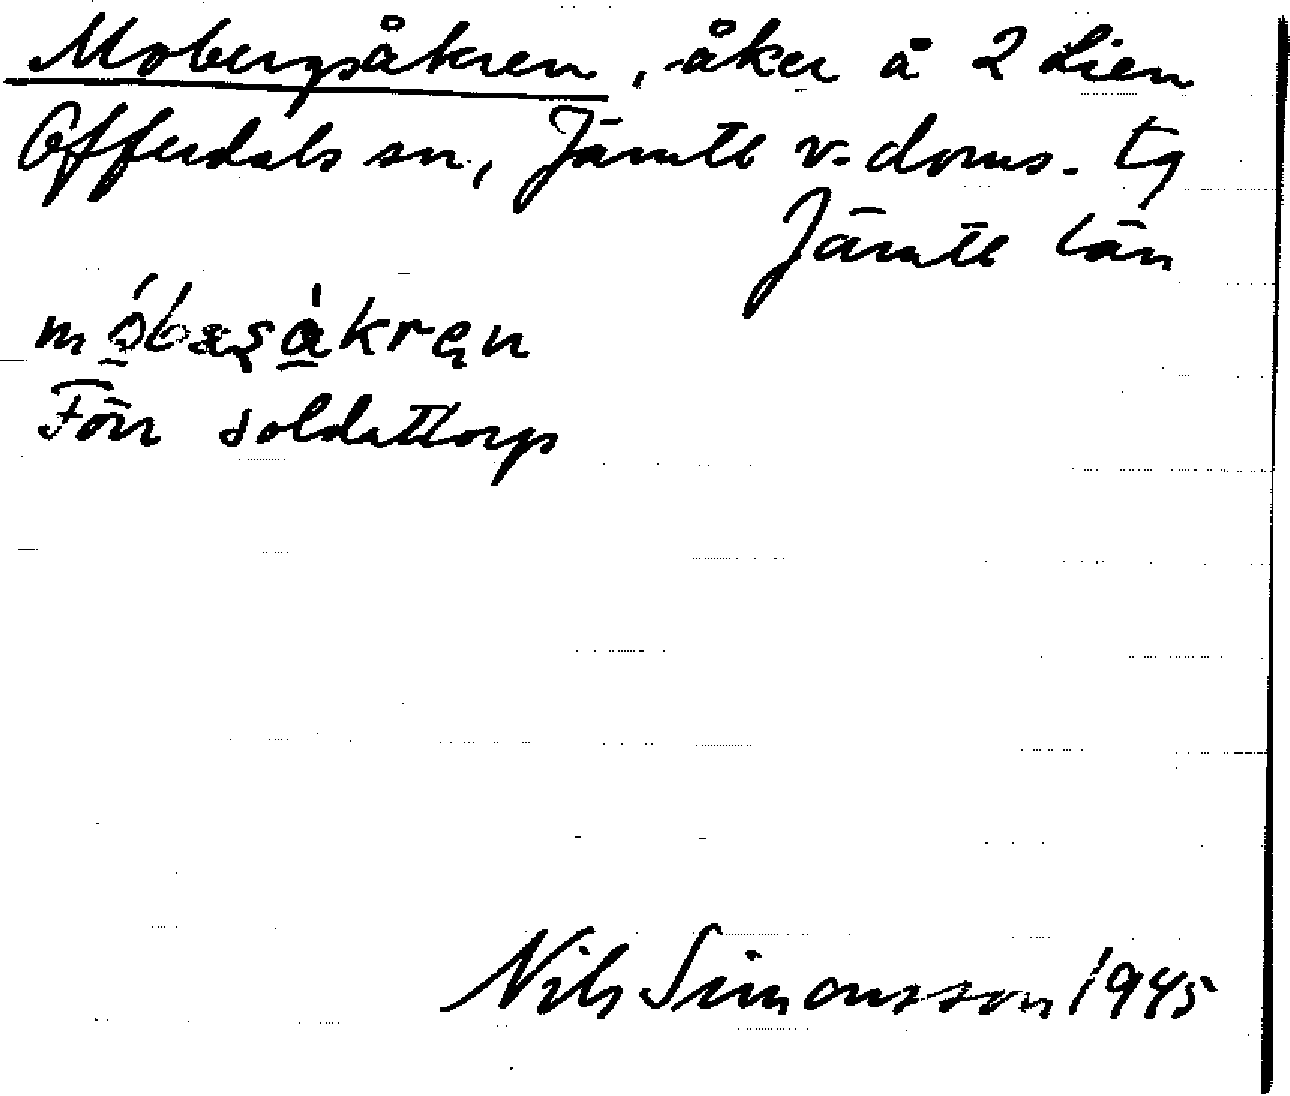 Mobergsåkren, åker å 2 Lien
Offerdals sn, Jämtl v. doms. tg
Jämtl län
Förr soldattorp
Nils Simonsson 1945